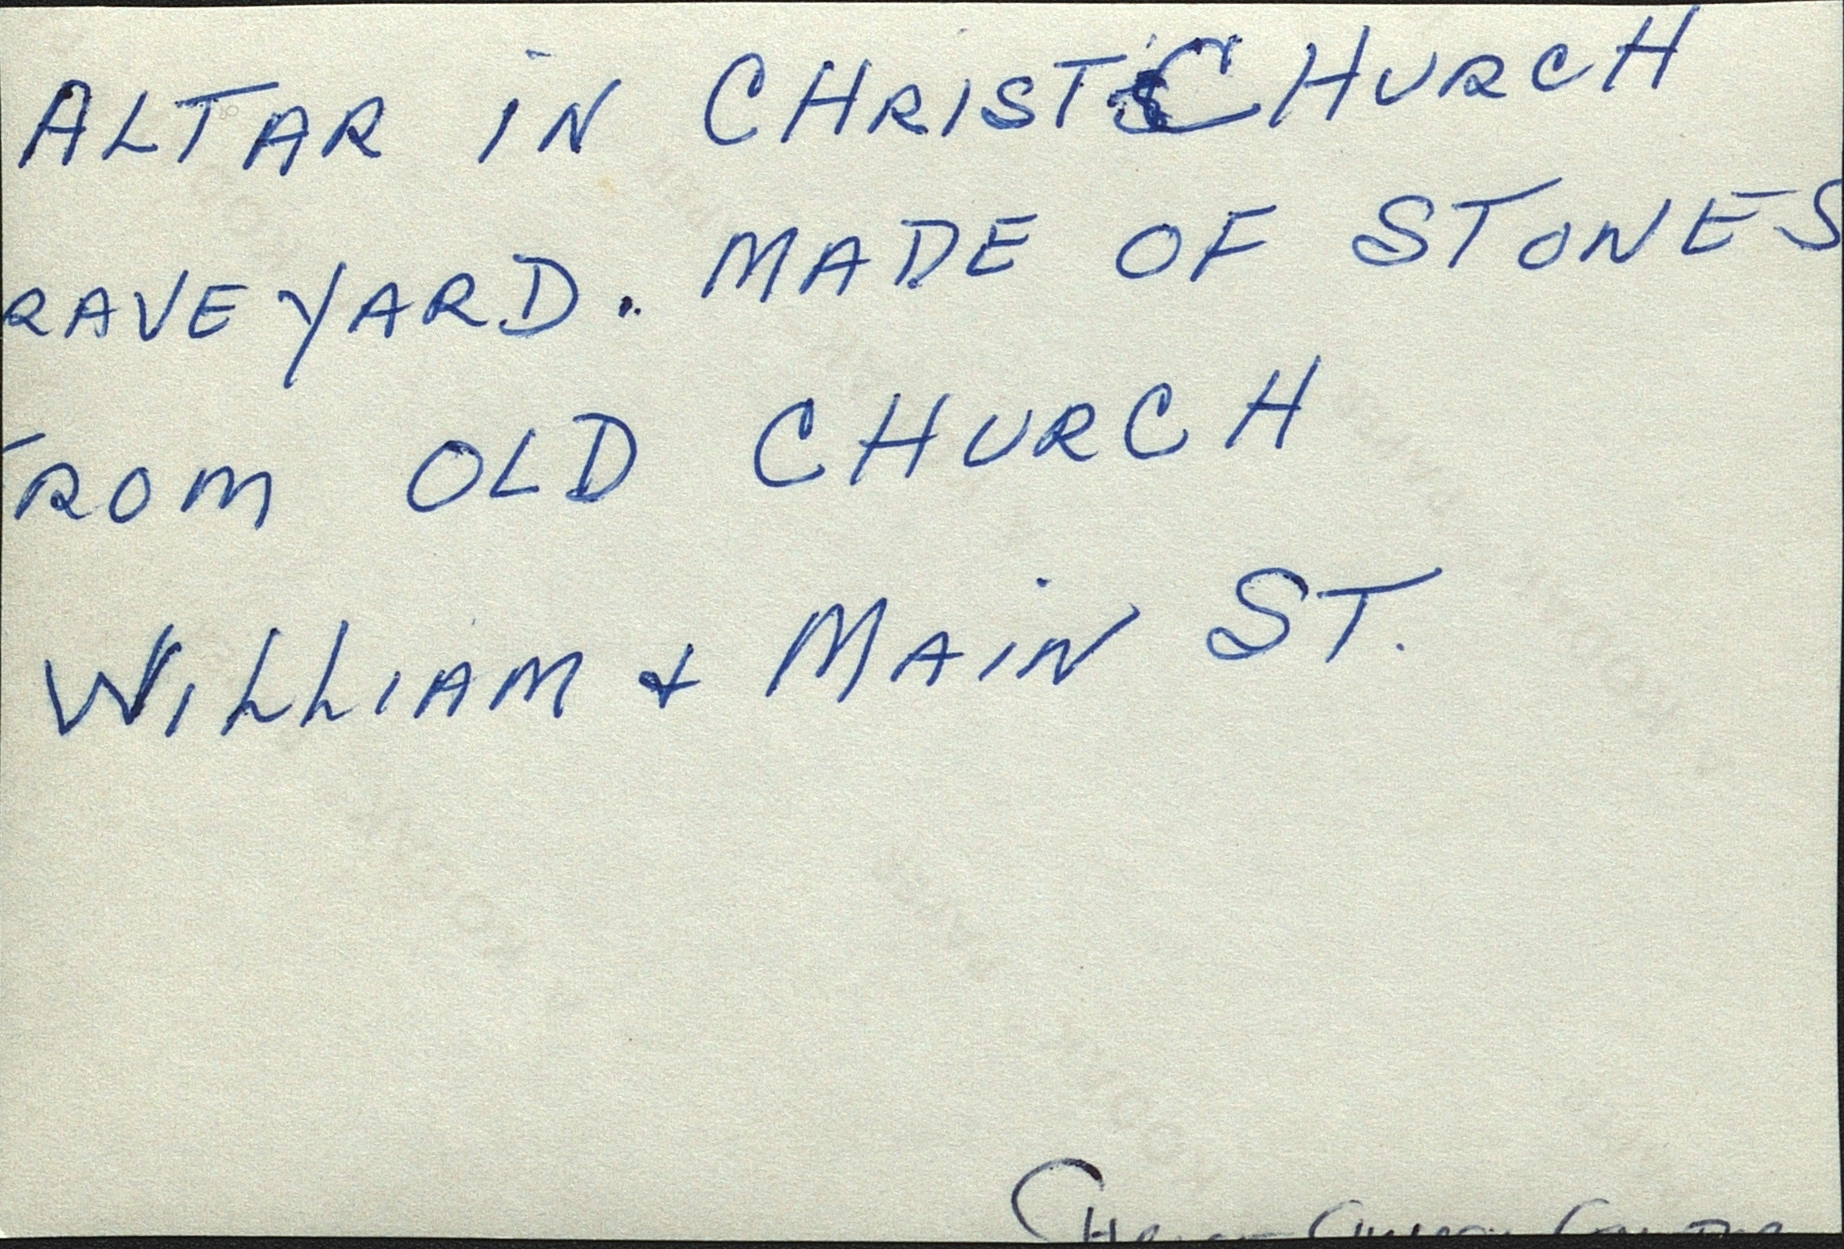 ALTAR IN CHRIST CHURCH
RAVEYARD. MADE OF STONES
FROM OLD CHURCH
WILLIAM + MAIN ST.